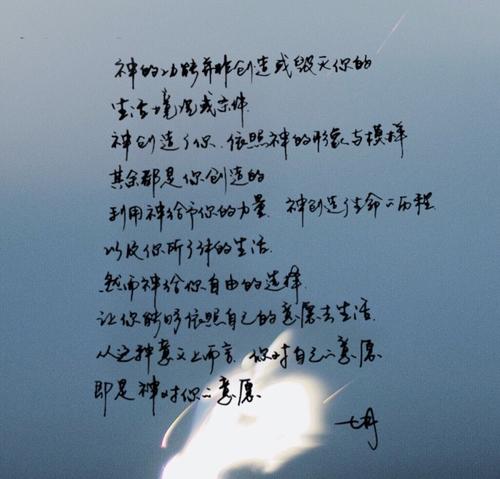 神的功能并非创造或毁灭你的
生活境况或条件
神创造了你、依照神的形象与模样
其余都是你创造的
利用神给予你的力量、神创造生命的历程
以及你所了体的生活
然而神给你自由的选择
让你能够依照自己的意愿去生活
从这种意义上而言、你对自己的意愿
即是神对你的意愿